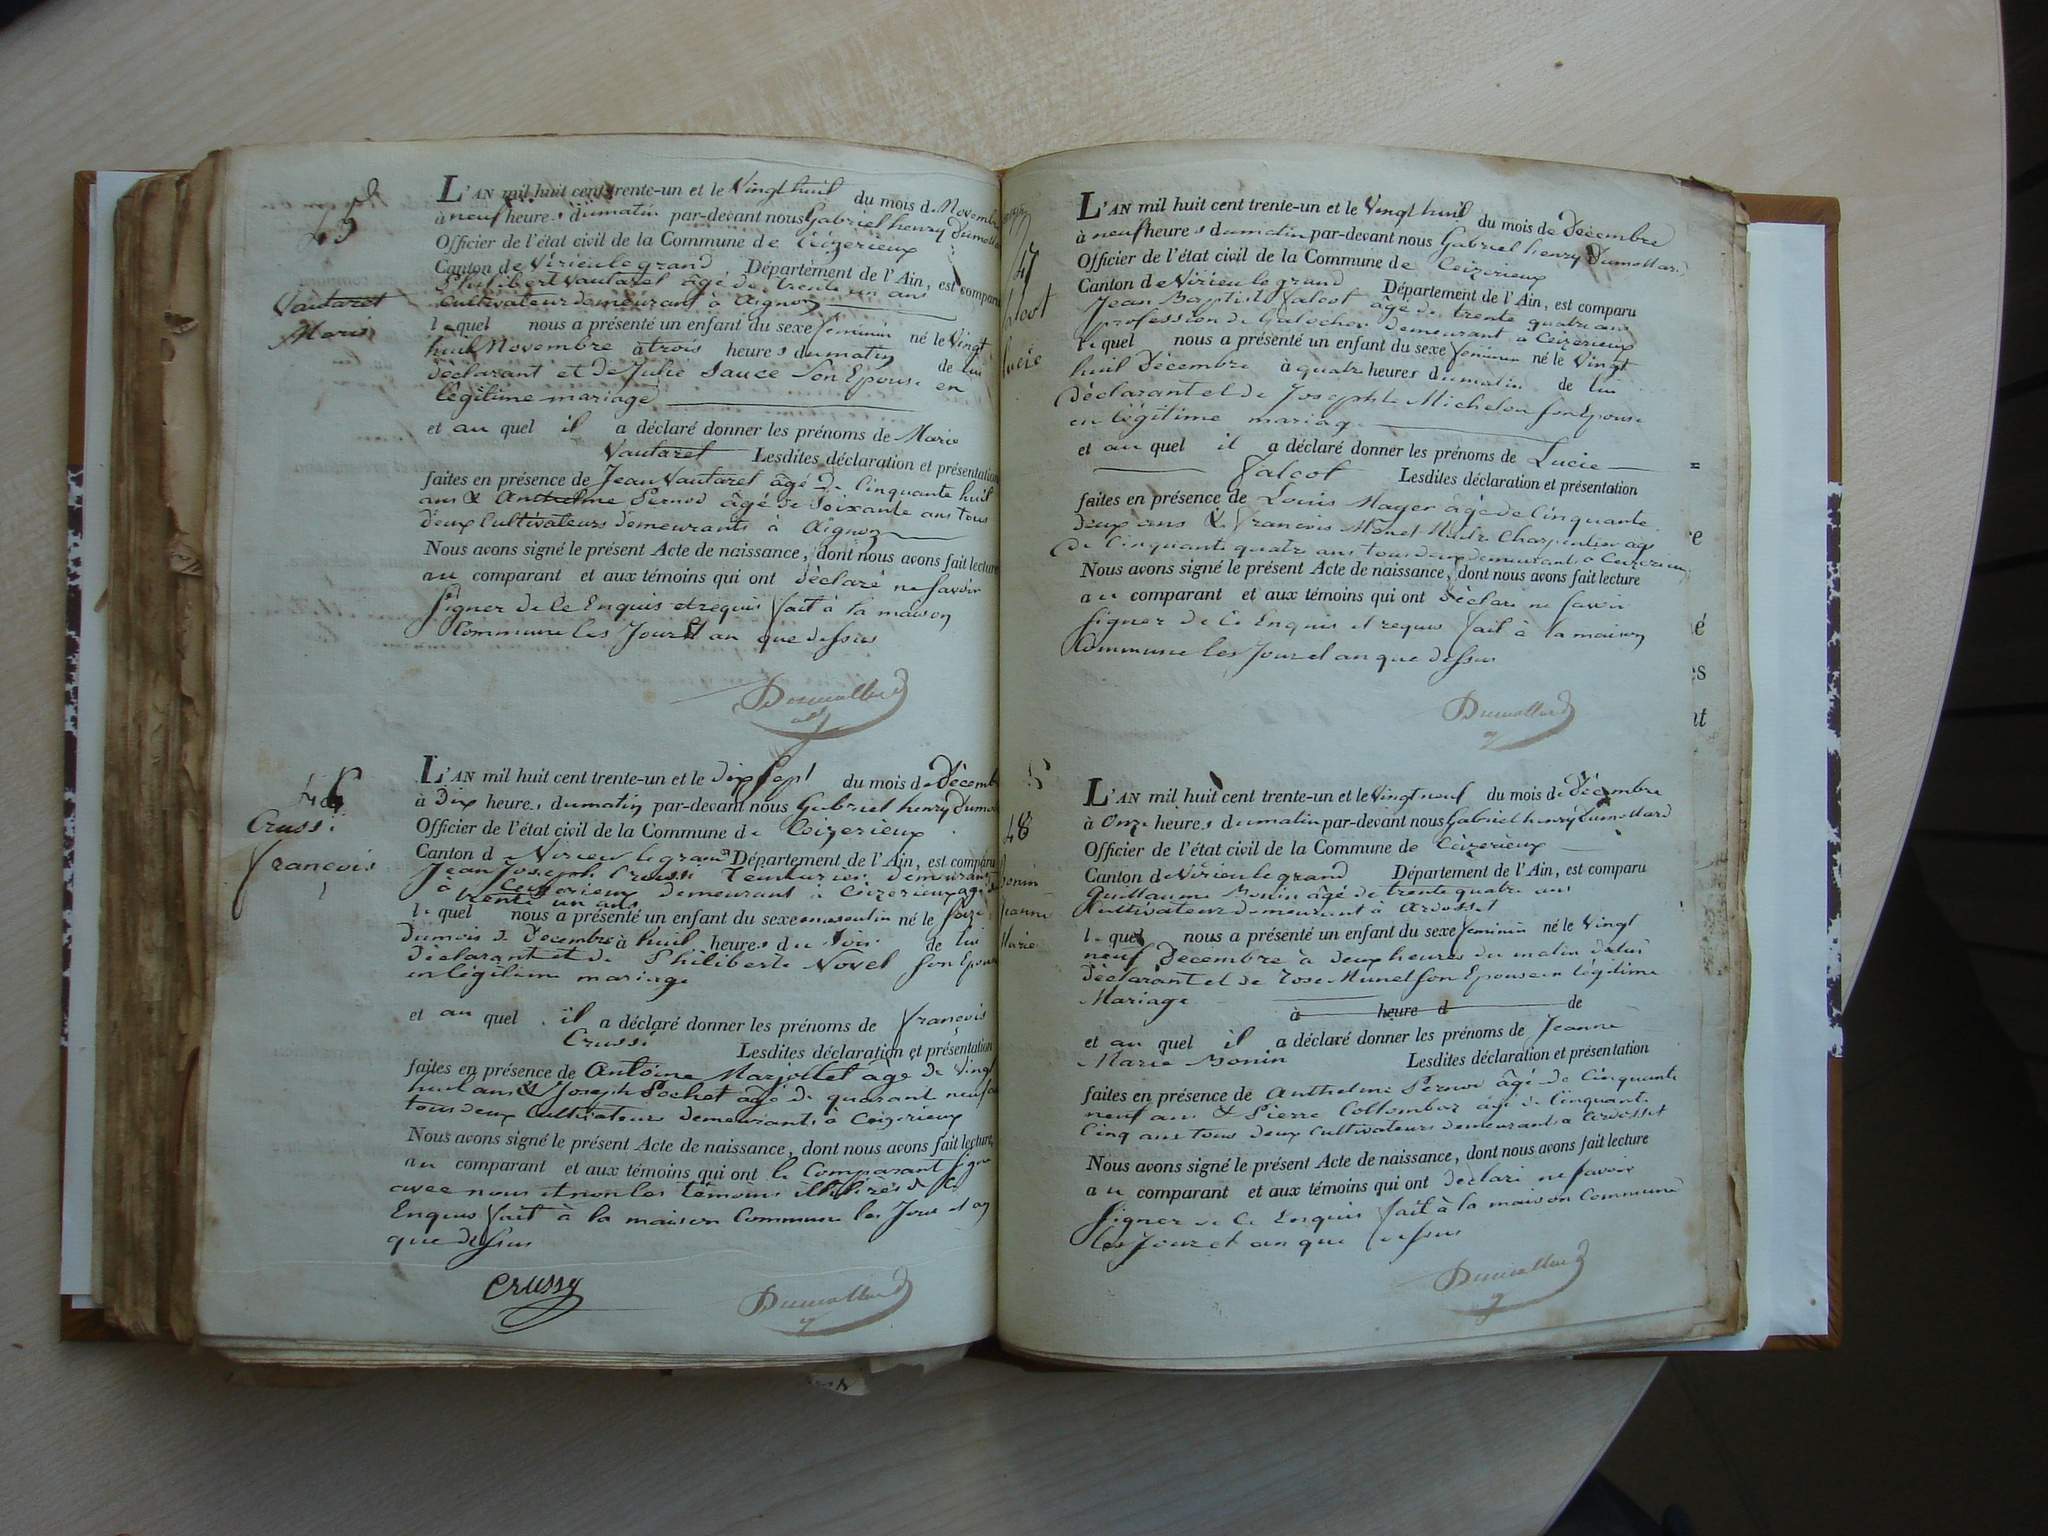 45
Vautaret
Marie
L'AN mil huit cent trente-un et le Vingt huit du mois de Novembre
à neuf heures du matin par-devant nous Gabriel henry Dumollard
Officier de l'état civil de la Commune de Ceizerieux
Canton de Virieu le grand Département de l'Ain, est comparu
Philibert Vautaret âgé de trente un ans
Cultivateur demeurant à Aignoz
lequel nous a présenté un enfant du sexe feminin né le Vingt
huit Novembre à trois heures du matin de lui
déclarant et de Julie Sauce son Epouse en
légitime mariage
et au quel il a déclaré donner les prénoms de Marie
Vautaret Lesdites déclaration et présentation
faites en présence de Jean Vautaret âgé de Cinquante huit
ans & Anthelme Pernod âgé de Soixante ans tous
deux Cultivateurs demeurants à Aignoz
Nous avons signé le présent Acte de naissance, dont nous avons fait lecture
au comparant et aux témoins qui ont déclaré ne savoir
signer de ce Enquis et requis fait à la maison
Commune les Jour et an que dessus
Dumollard
46
Crussi
francois
L'AN mil huit cent trente-un et le dix sept du mois de Décembre
à Dix heures du matin par-devant nous Gabriel henry Dumollard
Officier de l'état civil de la Commune de Ceizerieux
Canton d Virieu le grand Département de l'Ain, est comparu
Jean Joseph Crussi Teinturier demeurant
à Ceizerieux demeurant à Ceizerieux âgé de
trente un ans
lequel nous a présenté un enfant du sexe masculin né le seize
du mois de Decembre à huit heures du Soir de lui
déclarant et de Philiberte Novel son Epouse
en légitime mariage
et au quel il a déclaré donner les prénoms de françois
Crussi Lesdites déclaration et présentation
faites en présence de Antoine Marjollet âgé de Vingt
huit ans & Joseph Pochet âgé de quarant neuf ans
tous deux Cultivateurs demeurants à Ceizerieux
Nous avons signé le présent Acte de naissance, dont nous avons fait lecture
au comparant et aux témoins qui ont le Comparant signé
avec nous et non les témoins illitérés de ce
Enquis fait à la maison Commune les Jour et an
que dessus
Crussy
Dumollard
47
falcot
Lucie
L'AN mil huit cent trente-un et le Vingt huit du mois de Décembre
à neuf heures du matin par-devant nous Gabriel henry Dumollard
Officier de l'état civil de la Commune de Ceizerieux
Canton de Virieu le grand Département de l'Ain, est comparu
Jean Baptiste falcot âgé de trente quatre ans
profession de Galocher demeurant à Ceizerieux
lequel nous a présenté un enfant du sexe feminin né le Vingt
huit Décembre à quatre heures du matin de lui
déclarant et de Josephte Michelou son Epouse
en légitime mariage
et au quel il a déclaré donner les prénoms de Lucie
falcot Lesdites déclaration et présentation
faites en présence de Louis Mayer âgé de Cinquante
deux ans & francois Monet Maitre Charpentier âgé
de Cinquante quatre ans tous deux demeurant à Ceizerieux
Nous avons signé le présent Acte de naissance, dont nous avons fait lecture
au comparant et aux témoins qui ont déclaré ne savoir
signer de ce Enquis et requis fait à la maison
Commune les Jour et an que dessus
Dumollard
48
Bonin
Jeanne
Marie
L'AN mil huit cent trente-un et le Vingt neuf du mois de décembre
à Onze heures du matin par-devant nous Gabriel henry Dumollard
Officier de l'état civil de la Commune de Ceizerieux
Canton de Virieu le grand Département de l'Ain, est comparu
Guillaume Bonin âgé de trente quatre ans
Cultivateur demeurant à Ardosset
lequel nous a présenté un enfant du sexe feminin né le Vingt
neuf Décembre à deux heures du matin de lui
déclarant et de Rose Munet son Epouse en légitime
Mariage
à heure d de
et au quel il a déclaré donner les prénoms de Jeanne
Marie Bonin Lesdites déclaration et présentation
faites en présence de Anthelme Pernod âgé de Cinquante
neuf ans & Pierre Collombaz âgé de Cinquante
Cinq ans tous deux Cultivateurs demeurants à Ardosset
Nous avons signé le présent Acte de naissance, dont nous avons fait lecture
au comparant et aux témoins qui ont declaré ne savoir
signer de Ce Enquis fait à la maison Commune
les Jour et an que dessus
Dumollard